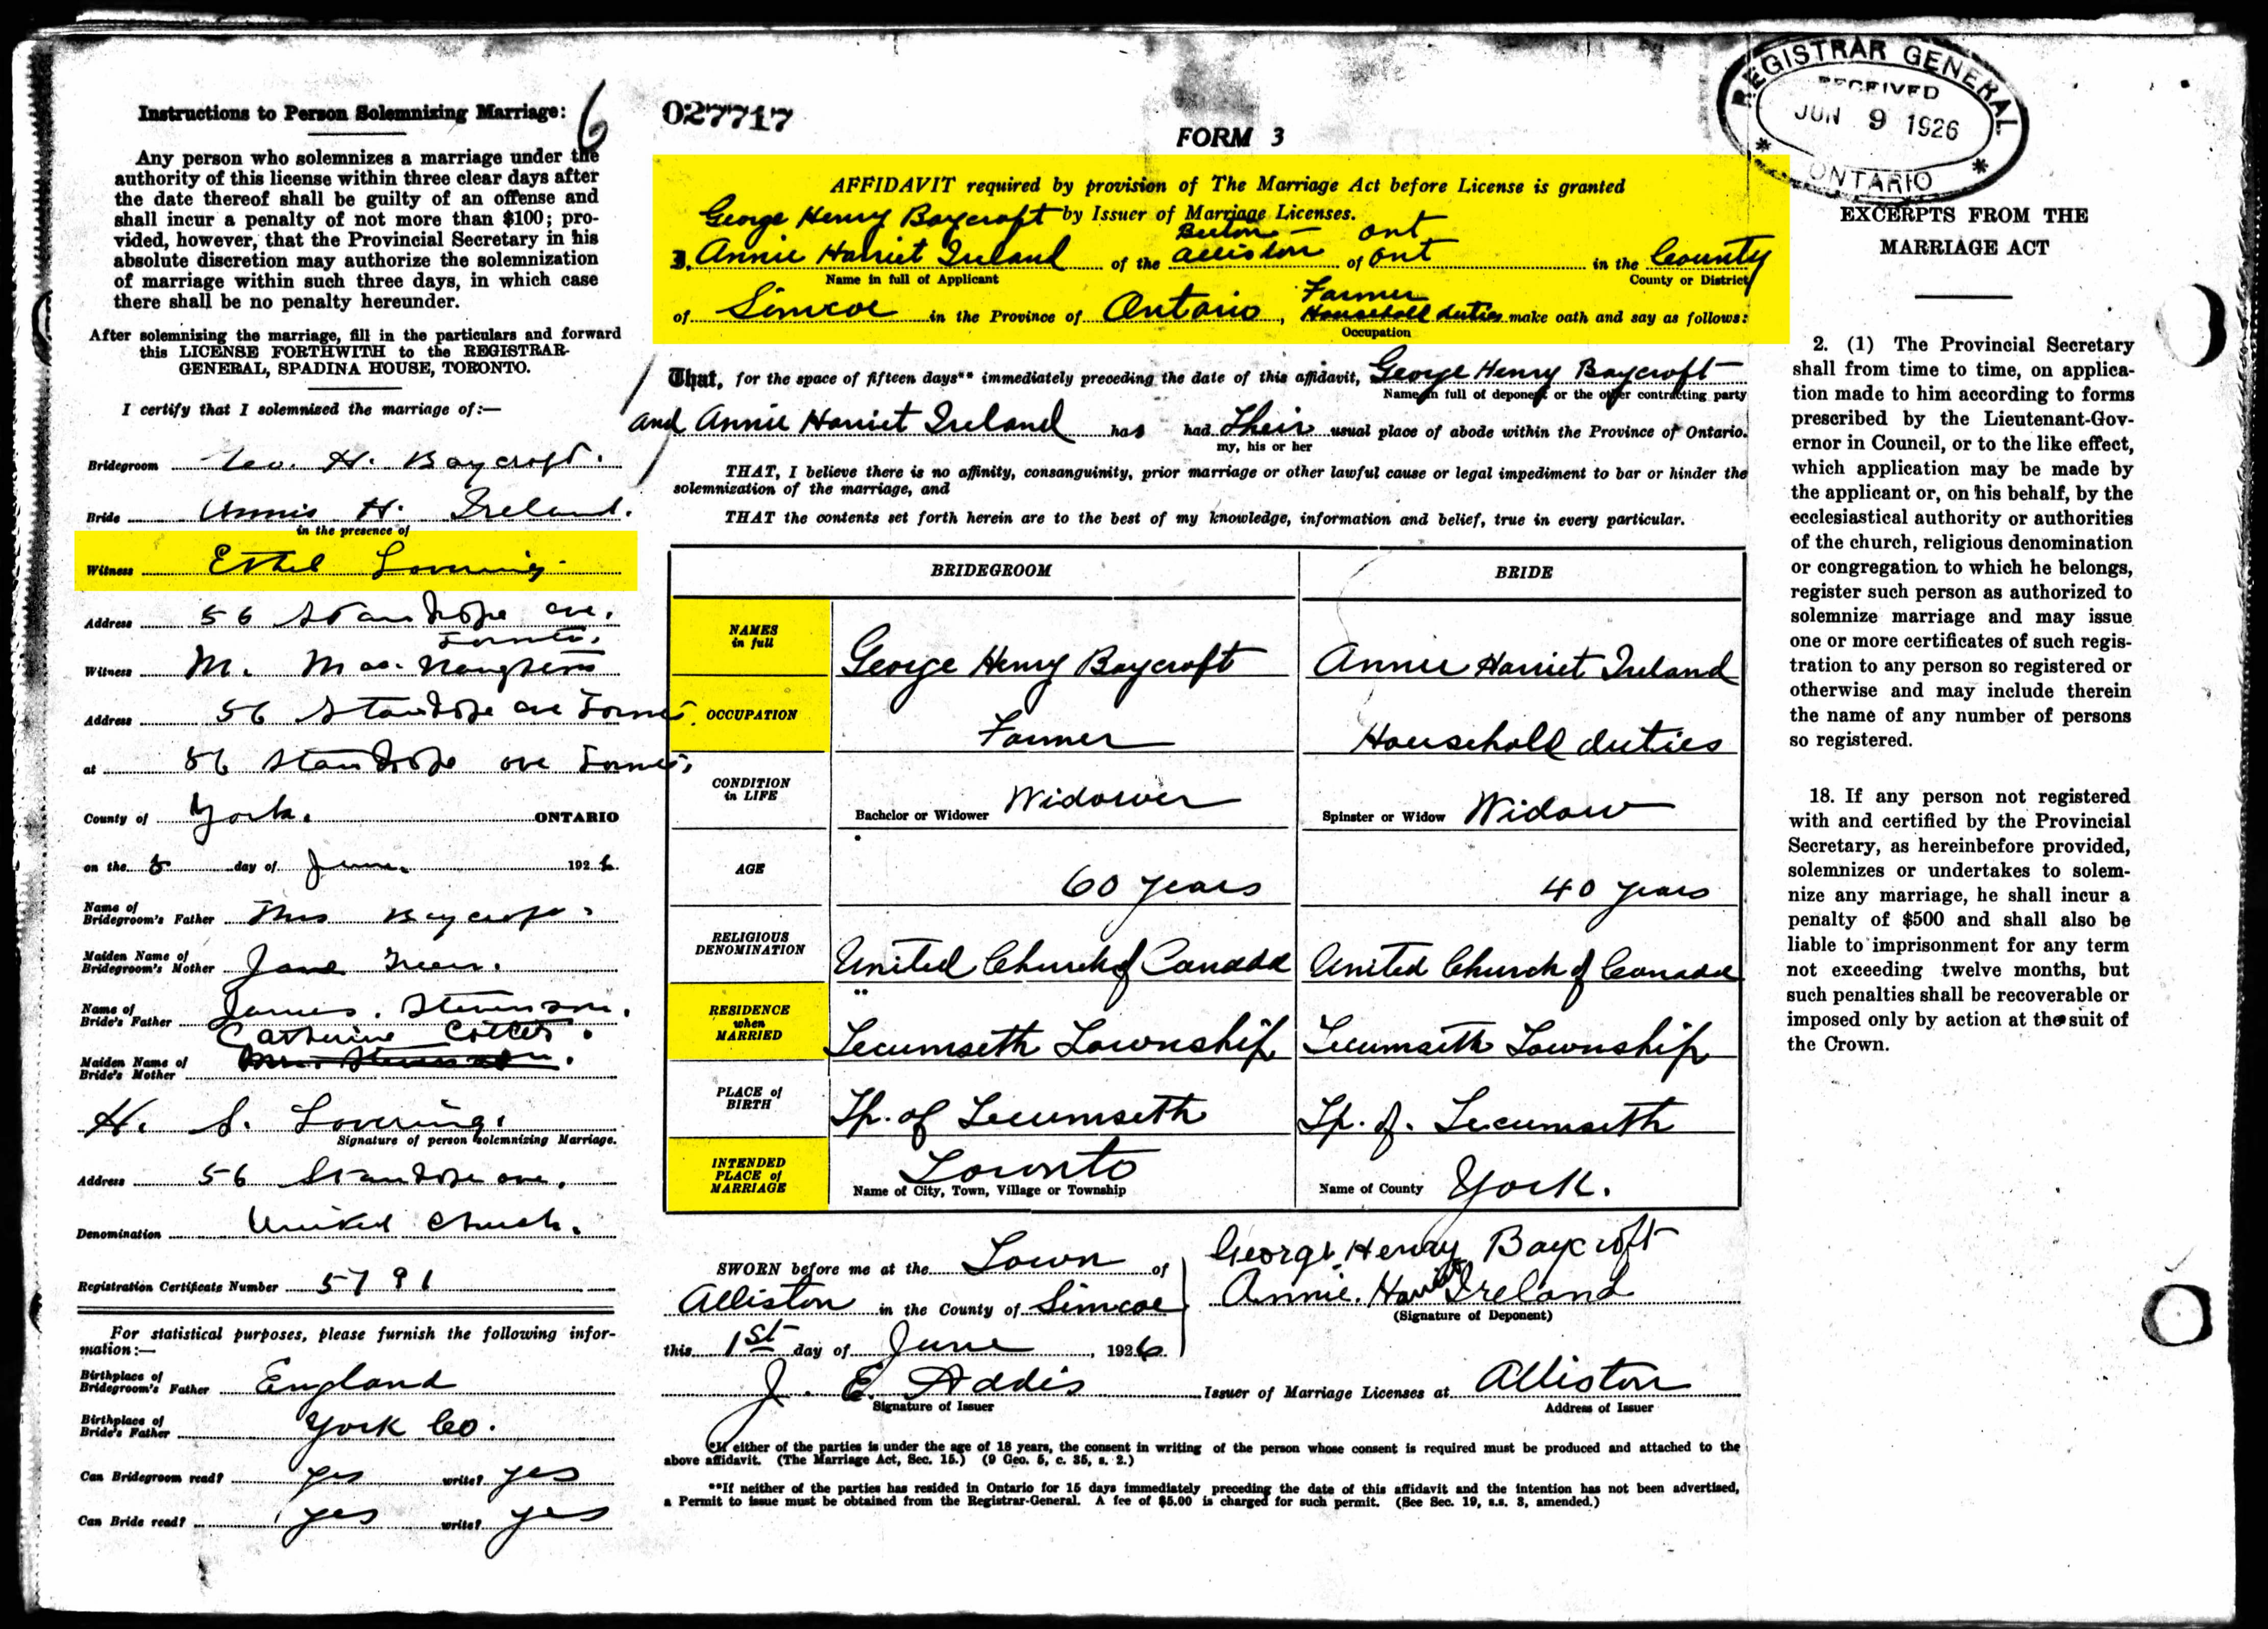 Instructions to Person Solemnizing Marriage: 6
Any person who solemnizes a marriage under the
authority of this license within three clear days after
the date thereof shall be guilty of an offense and
shall incur a penalty of not more than $100; pro-
vided, however, that the Provincial Secretary in his
absolute discretion may authorize the solemnization
of marriage within such three days, in which case
there shall be no penalty hereunder.
After solemnizing the marriage, fill in the particulars and forward
this LICENSE FORTHWITH to the REGISTRAR-
GENERAL, SPADINA HOUSE, TORONTO.
I certify that I solemnized the marriage of:—
Bridegroom Geo. H. Baycroft.
Bride Annie H. Ireland.
in the presence of
Witness Ethel Lovering
Address 56 Stanhope ave.
Toronto.
Witness M.
Address 56 Stanhope ave Toronto.
at 56 Stanhope ave Toronto,
County of York. ONTARIO
on the 5 day of June. 1926
Name of
Bridegroom's Father Thos Baycroft
Maiden Name of
Bridegroom's Mother Jane Green.
Name of
Bride's Father James. Stevenson.
Catherine
Maiden Name of
Bride's Mother
H. S. Lovering.
Signature of person solemnizing Marriage.
Address 56 Stanhope ave.
Denomination United Church.
Registration Certificate Number 5791
For statistical purposes, please furnish the following infor-
mation:—
Birthplace of
Bridegroom's Father England
Birthplace of
Bride's Father York Co.
Can Bridegroom read? yes write? yes
Can Bride read? yes write? yes
027717
FORM 3
AFFIDAVIT required by provision of The Marriage Act before License is granted
George Henry Baycroft by Issuer of Marriage Licenses.
Beeton ont
I, Annie Harriet Ireland of the Alliston of ont in the County
Name in full of Applicant County or District
Farmer
of Simcoe in the Province of Ontario, Household duties make oath and say as follows:
Occupation
That, for the space of fifteen days** immediately preceding the date of this affidavit, George Henry Baycroft
Name in full of deponent or the other contracting party
and Annie Harriet Ireland has had Their usual place of abode within the Province of Ontario.
my, his or her
THAT, I believe there is no affinity, consanguinity, prior marriage or other lawful cause or legal impediment to bar or hinder the
solemnization of the marriage, and
THAT the contents set forth herein are to the best of my knowledge, information and belief, true in every particular.
BRIDEGROOM BRIDE
NAMES
in full
George Henry Baycroft Annie Harriet Ireland
OCCUPATION
Farmer Household duties
CONDITION
in LIFE
Bachelor or Widower Widower Spinster or Widow Widow
AGE
60 years 40 years
RELIGIOUS
DENOMINATION
United Church of Canada United Church of Canada
RESIDENCE
when
MARRIED
Tecumseth Township Tecumseth Township
PLACE of
BIRTH
Tp. of Tecumseth Tp. of. Tecumseth
INTENDED
PLACE of
MARRIAGE
Toronto York.
Name of City, Town, Village or Township Name of County
SWORN before me at the Town of
Alliston in the County of Simcoe
this 1st day of June, 1926
George Henry Baycroft
Annie. Harriet Ireland
(Signature of Deponent)
J. E. Addis Issuer of Marriage Licenses at Alliston
Signature of Issuer Address of Issuer
*If either of the parties is under the age of 18 years, the consent in writing of the person whose consent is required must be produced and attached to the
above affidavit. (The Marriage Act, Sec. 15.) (9 Geo. 5, c. 35, s. 2.)
**If neither of the parties has resided in Ontario for 15 days immediately preceding the date of this affidavit and the intention has not been advertised,
a Permit to issue must be obtained from the Registrar-General. A fee of $5.00 is charged for such permit. (See Sec. 19, s.s. 3, amended.)
REGISTRAR GENERAL
RECEIVED
JUN 9 1926
* ONTARIO *
EXCERPTS FROM THE
MARRIAGE ACT
2. (1) The Provincial Secretary
shall from time to time, on applica-
tion made to him according to forms
prescribed by the Lieutenant-Gov-
ernor in Council, or to the like effect,
which application may be made by
the applicant or, on his behalf, by the
ecclesiastical authority or authorities
of the church, religious denomination
or congregation to which he belongs,
register such person as authorized to
solemnize marriage and may issue
one or more certificates of such regis-
tration to any person so registered or
otherwise and may include therein
the name of any number of persons
so registered.
18. If any person not registered
with and certified by the Provincial
Secretary, as hereinbefore provided,
solemnizes or undertakes to solem-
nize any marriage, he shall incur a
penalty of $500 and shall also be
liable to imprisonment for any term
not exceeding twelve months, but
such penalties shall be recoverable or
imposed only by action at the suit of
the Crown.